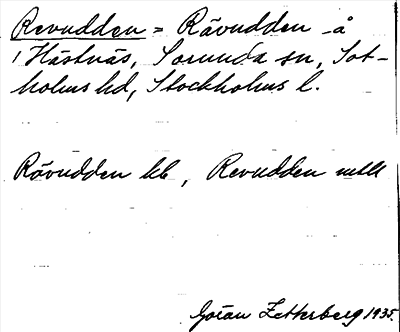 Revudden = Rävudden å
Hästnäs, Sorunda sn, Sot-
holms hd, Stockholms l.
Rävudden kb, Revudden mtlk
Göran Zetterberg 1935.